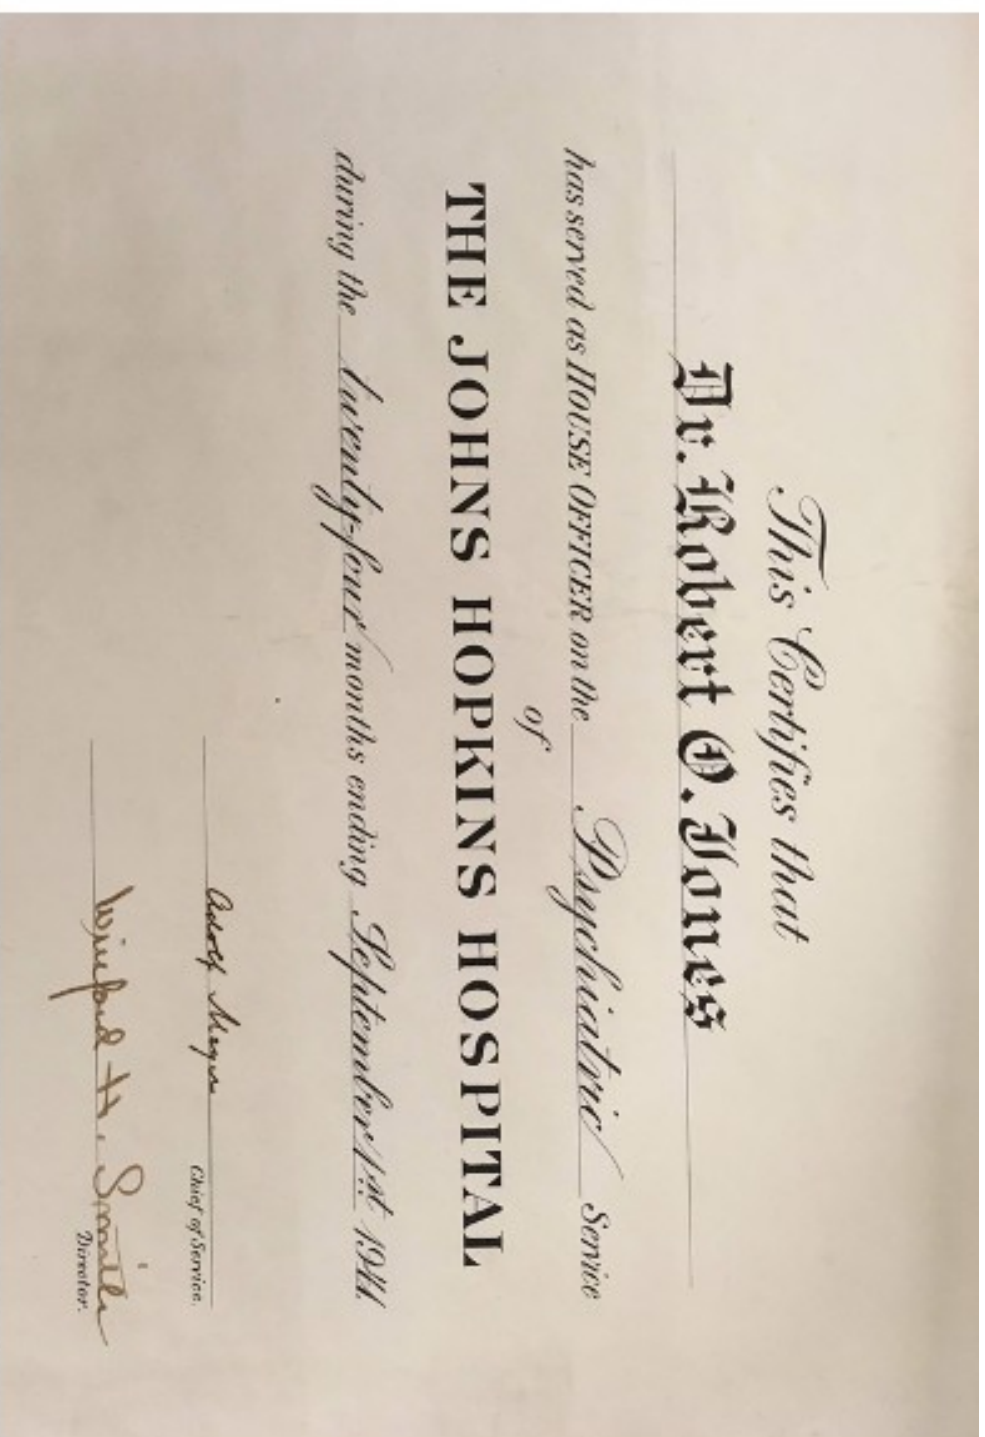 This Certifies that
Dr. Robert O. Jones
has served as HOUSE OFFICER on the Psychiatric Service
of
THE JOHNS HOPKINS HOSPITAL
during the twenty-four months ending September 1st. 1941.
Adolf Meyer
Chief of Service.
Winford H. Smith
Director.